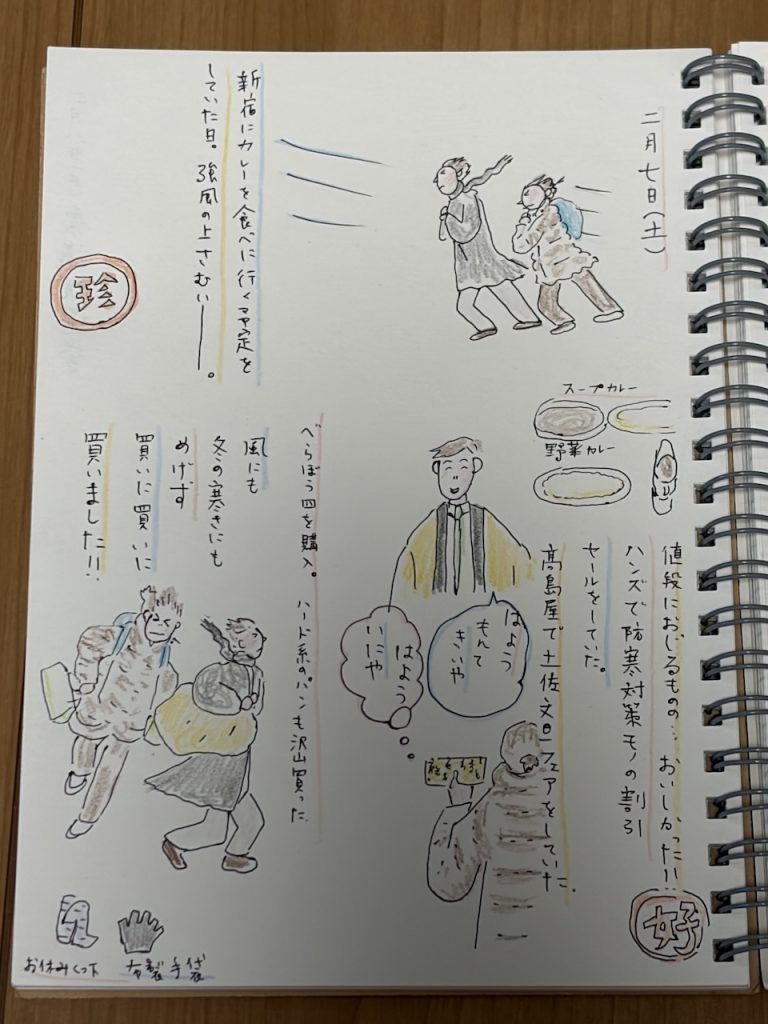 二月七日(土)
新宿にカレーを食べに行く予定を
していた日。強風の上さむい――。
珍
スープカレー
野菜カレー
値段におじるものの… おいしかった!!
ハンズで防寒対策モノの割引
セールをしていた。
高島屋で土佐文旦フェアをしていた。
はよう
もんて
きいや
はよう
いにや
好
べらぼう凹を購入。ハード系のパンも沢山買った
風にも
冬の寒さにも
めげず
買いに買いに
買いました!!
お休みくつ下
布製手袋